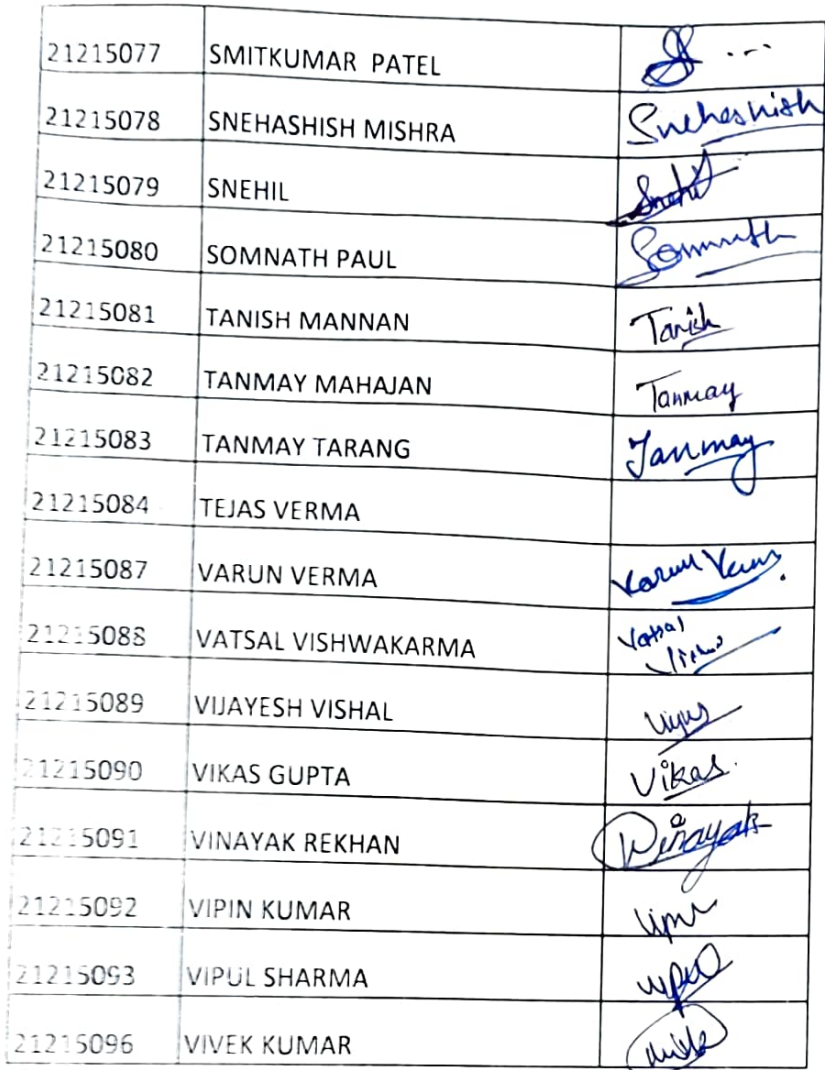 21215077 SMITKUMAR PATEL
21215078 SNEHASHISH MISHRA Snehashish
21215079 SNEHIL Snehil
21215080 SOMNATH PAUL Somnath
21215081 TANISH MANNAN Tanish
21215082 TANMAY MAHAJAN Tanmay
21215083 TANMAY TARANG Tanmay
21215084 TEJAS VERMA
21215087 VARUN VERMA Varun Verma
21215088 VATSAL VISHWAKARMA Vatsal
21215089 VIJAYESH VISHAL
21215090 VIKAS GUPTA Vikas
21215091 VINAYAK REKHAN Vinayak
21215092 VIPIN KUMAR Vipin
21215093 VIPUL SHARMA Vipul
21215096 VIVEK KUMAR